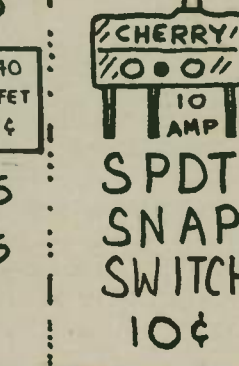 40
FET
¢
CHERRY
10
AMP
SPDT
SNAP
SWITCH
10¢